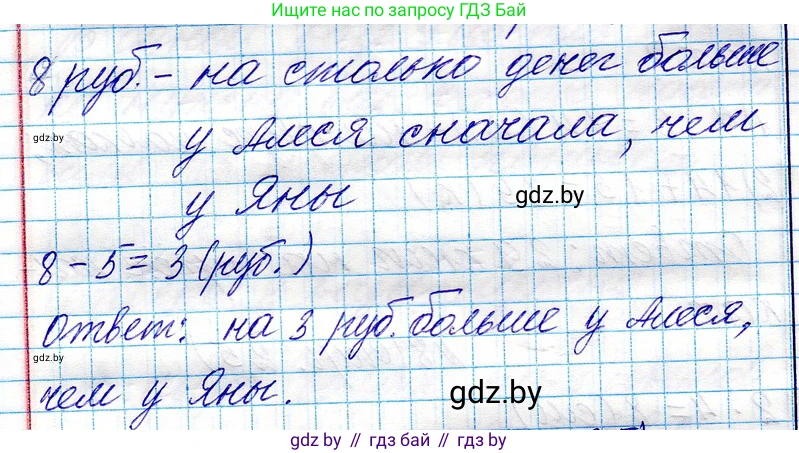 Ищите нас по запросу ГДЗ Бай
8 руб. - на столько денег больше
gdz.by
у Алеся сначала, чем
у Яны
gdz.by
8 - 5 = 3 (руб.)
ответ: на 3 руб. больше у Алеся,
gdz.by
чем у Яны.
gdz.by
gdz.by // гдз бай // gdz.by